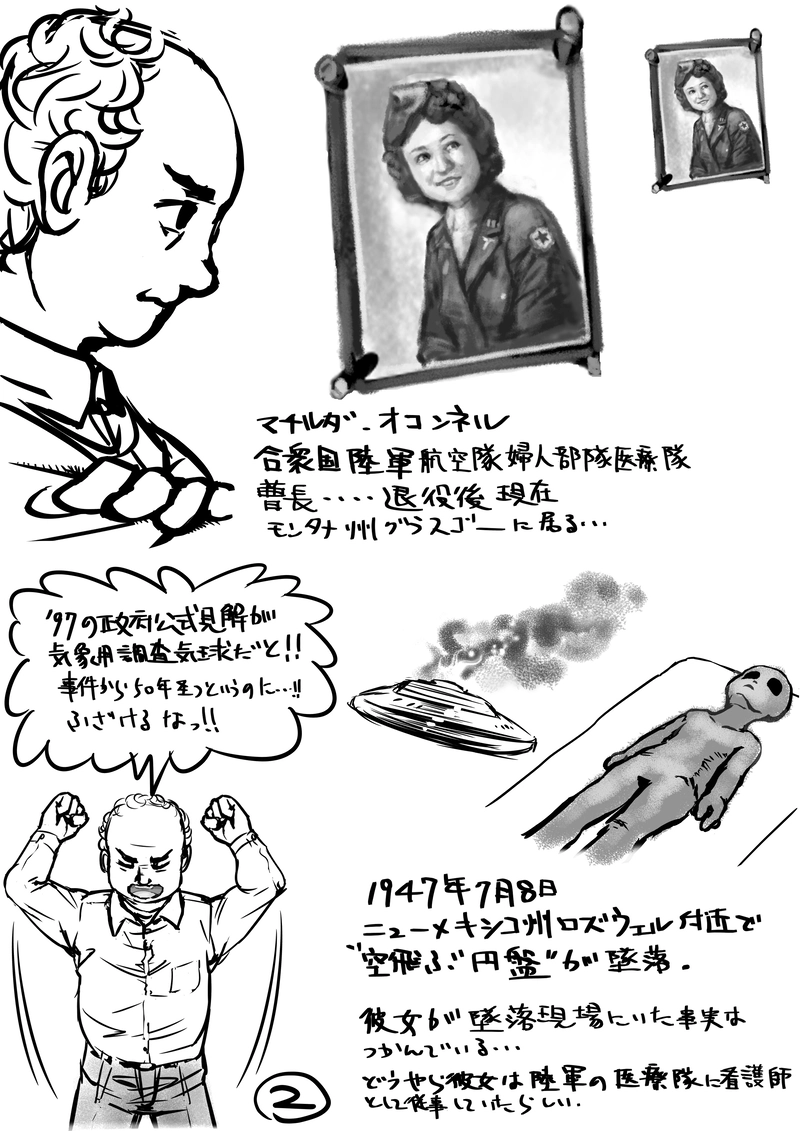 マチルダ・オコンネル
合衆国陸軍航空隊婦人部隊医療隊
曹長‥‥退役後現在
モンタナ州グラスゴーに居る…
'97の政府公式見解が
気象用調査気球だと!!
事件から50年経つというのに…!!
ふざけるなっ!!
1947年7月8日
ニューメキシコ州ロズウェル付近で
"空飛ぶ円盤"が墜落.
彼女が墜落現場にいた事実は
つかんでいる…
どうやら彼女は陸軍の医療隊に看護師
として従事していたらしい.
2